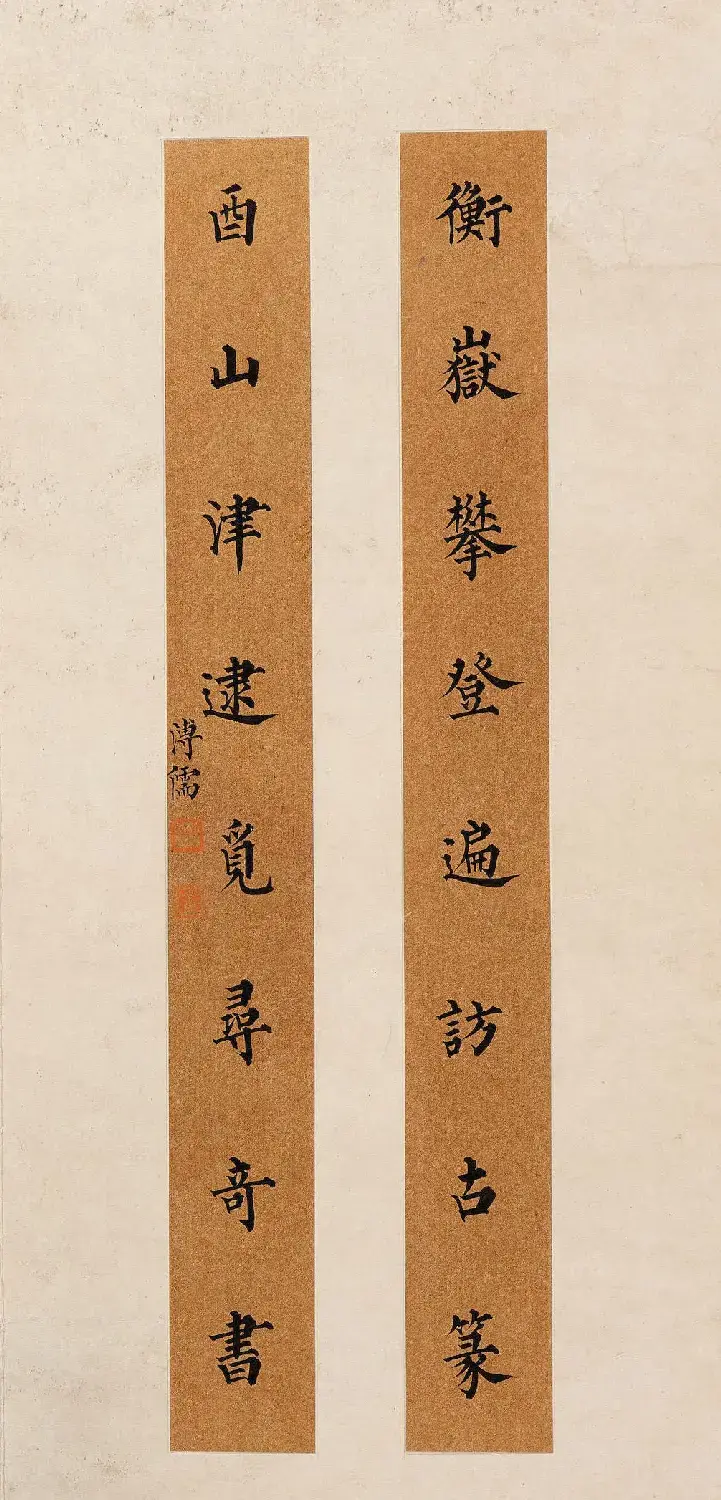 衡嶽攀登遍訪古篆
酉山津逮覓尋奇書
溥儒